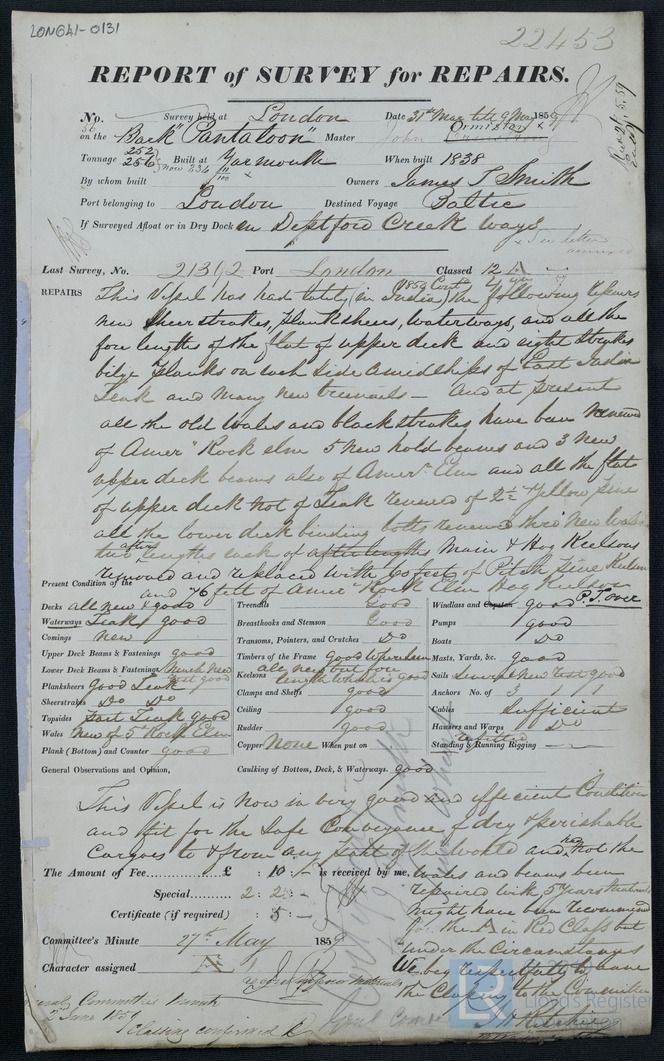 LON641-0131
22453
REPORT of SURVEY for REPAIRS.
No. 56 Survey held at London Date 31st Mar till 9 May 1859
on the Bark "Pantaloon" Master John Ormiston
Tonnage 252 256 now 234 Built at Yarmouth When built 1838
By whom built Owners James T Smith
Port belonging to London Destined Voyage Baltic
If Surveyed Afloat or in Dry Dock on Deptford Creek ways
Last Survey, No. 21302 Port London Classed 12 A
REPAIRS This Vessel has had lately (in India) the following repairs
new Sheerstrakes, Planksheers, Waterways, and all the
fore lengths of the flat of upper deck and eight strakes
bilge Planks on each side amidships of East India
Teak and many new treenails — And at present
all the old Wales and blackstrakes have been renewed
of Amer. Rock elm 5 new hold beams and 3 new
upper deck beams also of Amern Elm and all the flat
of upper deck not of Teak renewed of 2½ Yellow Pine
all the lower deck binding bolts renewed
two after lengths each of Main & Hog Keelsons
removed and replaced with 60 feet of Pitch Pine Keelson
and 46 feet of Amer. Rock Elm Hog Keelson P.T. over
Present Condition of the
Decks all new & good
Waterways Teak good
Comings new
Upper Deck Beams & Fastenings good
Lower Deck Beams & Fastenings Much New rest good
Planksheers Good Teak
Sheerstrakes Do Do
Topsides part Teak good
Wales New of 5 in Rock Elm
Plank (Bottom) and Counter good
Treenails Good
Breasthooks and Stemson Good
Transoms, Pointers, and Crutches Do
Timbers of the Frame Good where seen
Keelsons all new but fore length which is good
Clamps and Shelfs good
Ceiling good
Rudder good
Copper None When put on
Windlass and Capstan good
Pumps good
Boats Do
Masts, Yards, &c. good
Sails Several new rest good
Anchors No. of 3
Cables Sufficient
Hawsers and Warps Do
Standing & Running Rigging refitted
General Observations and Opinion, Caulking of Bottom, Deck, & Waterways. good
This Vessel is now in very good and efficient Condition
and fit for the Safe Conveyance of dry & perishable
Cargoes to & from any part of the World and, had not the
The Amount of Fee £ : 10 : - is received by me, Wales and beams been
Special 2 : 2 : - repaired with 5 years Materials
Certificate (if required) : 5 : - might have been recommended
for the A in Red Class but
Committee's Minute 27th May 1859 under the Circumstances
Character assigned We beg respectfully to leave
the Classing to the Committee
2 June 1859
Classing confirmed
Lloyd's Register